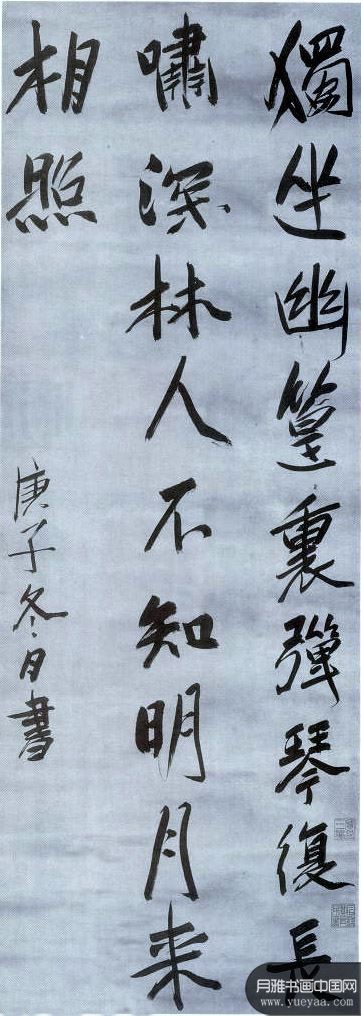 獨坐幽篁裏彈琴復長
嘯深林人不知明月来
相照
庚子冬月書
月雅书画中国网
www.yueyaa.com